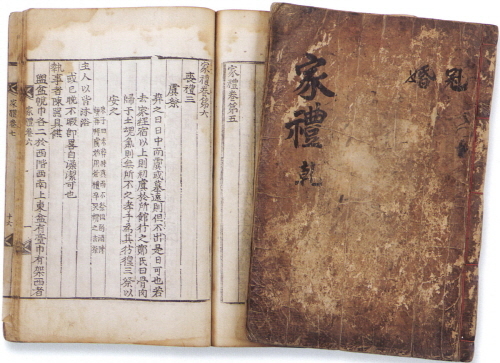 冠
婚
家禮 乾
家禮卷第五
家禮卷第六
喪禮三
虞祭
葬之日日中而虞或墓遠則但不出是日可也若
去家經宿以上則初虞於所館行之鄭氏曰骨肉
歸于土魂氣則無所不之孝子為其彷徨三祭以
安之
主人以皆沐浴
或已晚不暇即略自澡潔可也
執事者陳器具饌
盥盆帨巾各二於西階西南上東盆有臺巾有架西者
家禮卷六
家禮卷七